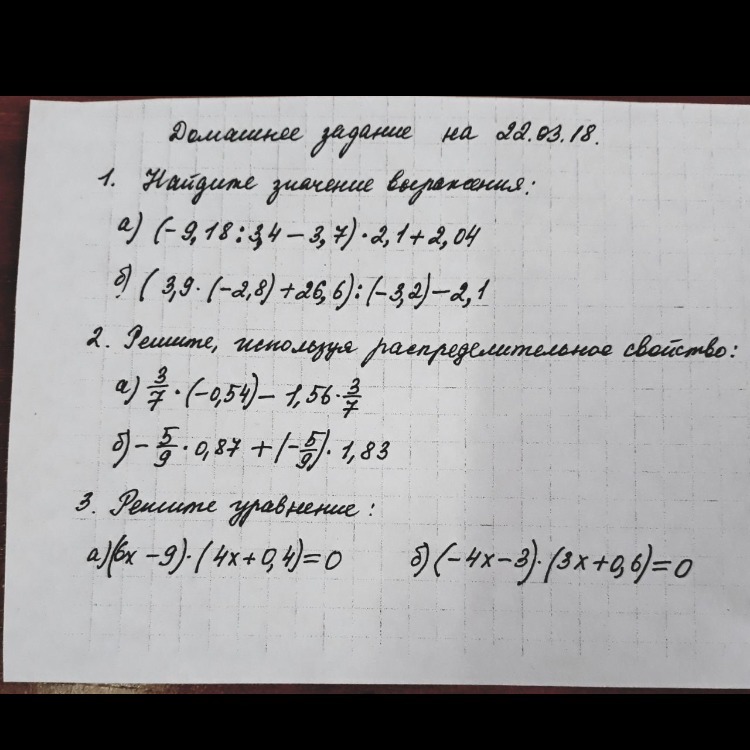 Домашнее задание на 22.03.18.
1. Найдите значение выражения:
а) (-9,18:3,4-3,7)·2,1+2,04
б) (3,9·(-2,8)+26,6):(-3,2)-2,1
2. Решите, используя распределительное свойство:
а) 3/7·(-0,54)-1,56·3/7
б) -5/9·0,87+(-5/9)·1,83
3. Решите уравнение:
а) (6х-9)·(4х+0,4)=0 б) (-4х-3)·(3х+0,6)=0